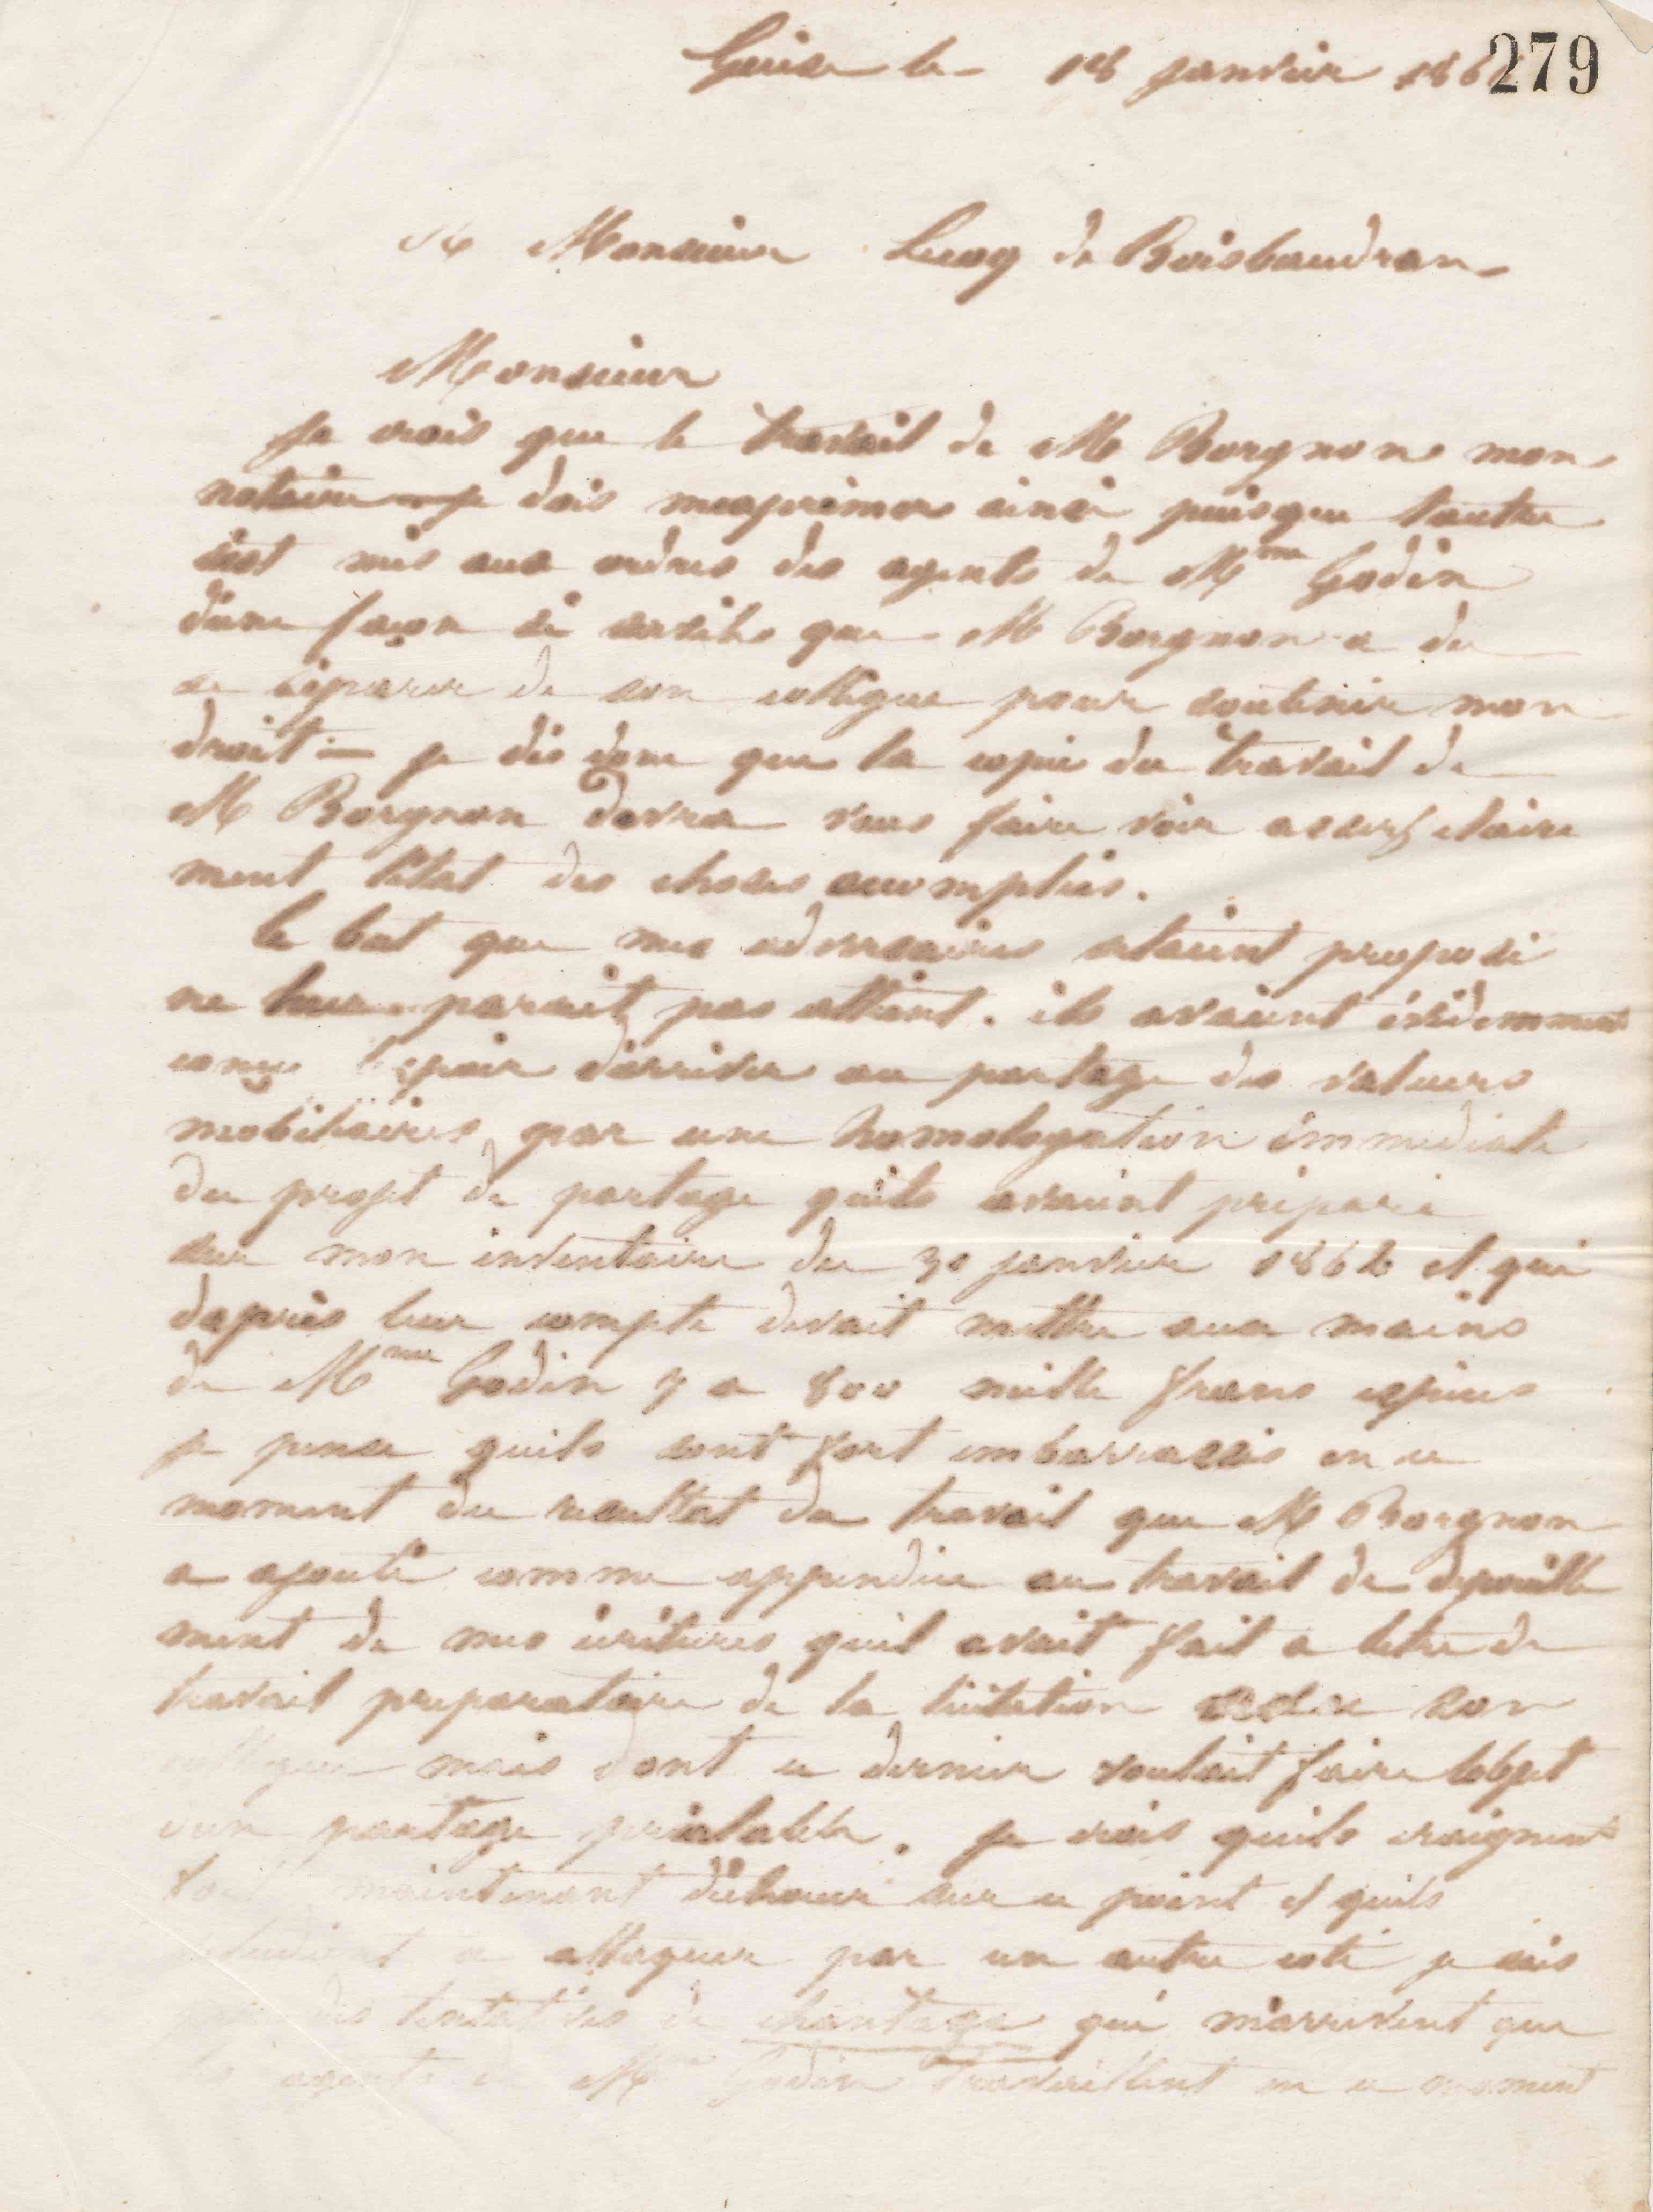 Guise le 18 janvier 186
279
A Monsieur Lecoq de Boisbaudran
Monsieur
Je crois que le travail de M Borgnon mon
notaire — je dois mexprimer ainsi puisque lautre
sest mis aux ordres des agents de Mme Godin
dune façon si servile que M Borgnon a du
se séparer de son collègue pour soutenir mon
droit — je dis donc que la copie du travail de
M Borgnon devra vous faire voir assez claire
ment létat des choses accomplies.
le but que mes adversaires sétaient proposé
ne leur parait pas atteint. ils avaient évidemment
conçu lespoir darriver au partage des valeurs
mobiliaires par une homologation immediate
du projet de partage quils avaient préparé
sur mon inventaire du 30 janvier 1864 et qui
daprès leur compte devait mettre aux mains
de Mme Godin 7 a 800 mille francs espèces
je pense quils sont fort embarrassés en ce
moment du resultat du travail que M Borgnon
a ajouté comme appendice au travail de depouille
ment de mes écritures quil avait fait a titre de
travail preparatoire de la licitation avec son
collègue mais dont ce dernier voulait faire lobjet
dun partage préalable. je crois quils craignent
maintenant déchouer sur ce point et quils
étudient a attaquer par un autre coté je sais
par des tentatives de chantage qui marrivent que
les agents de Mme Godin travaillent en ce moment